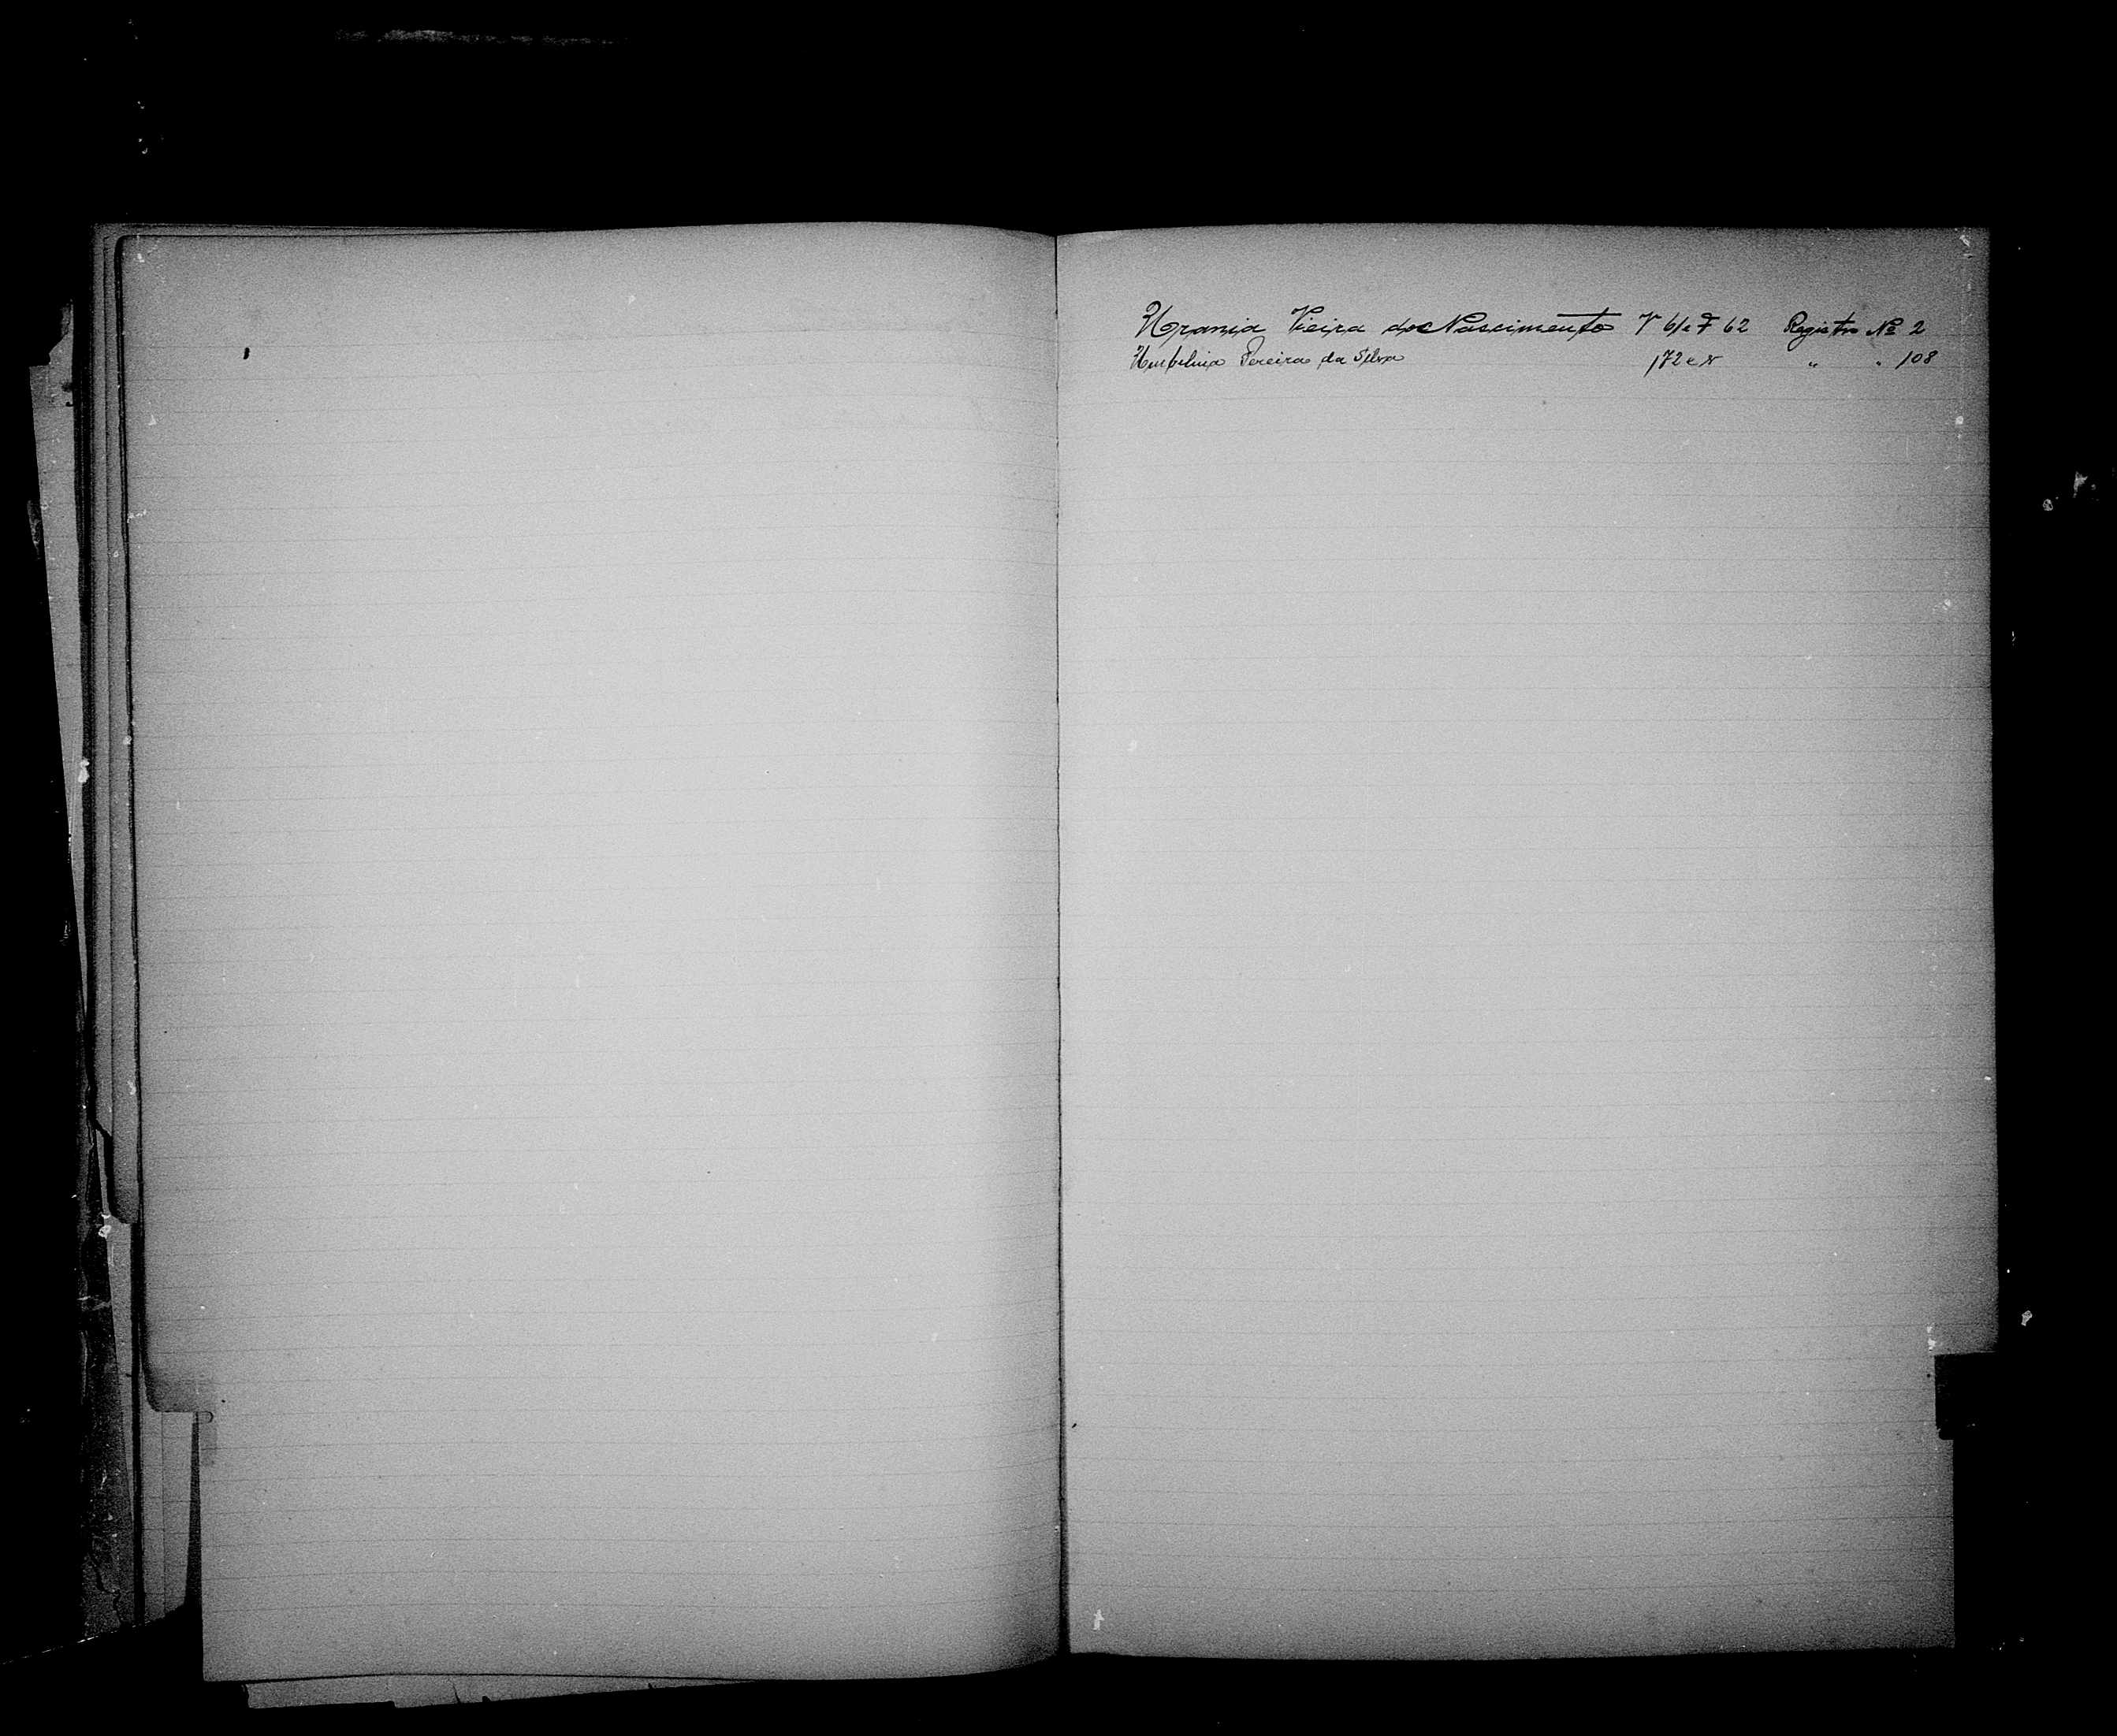 Urania Vieira do Nascimento V 61 e F 62 Registro Nº 2
Umbelina Pereira da Silva 172 e v " " 108